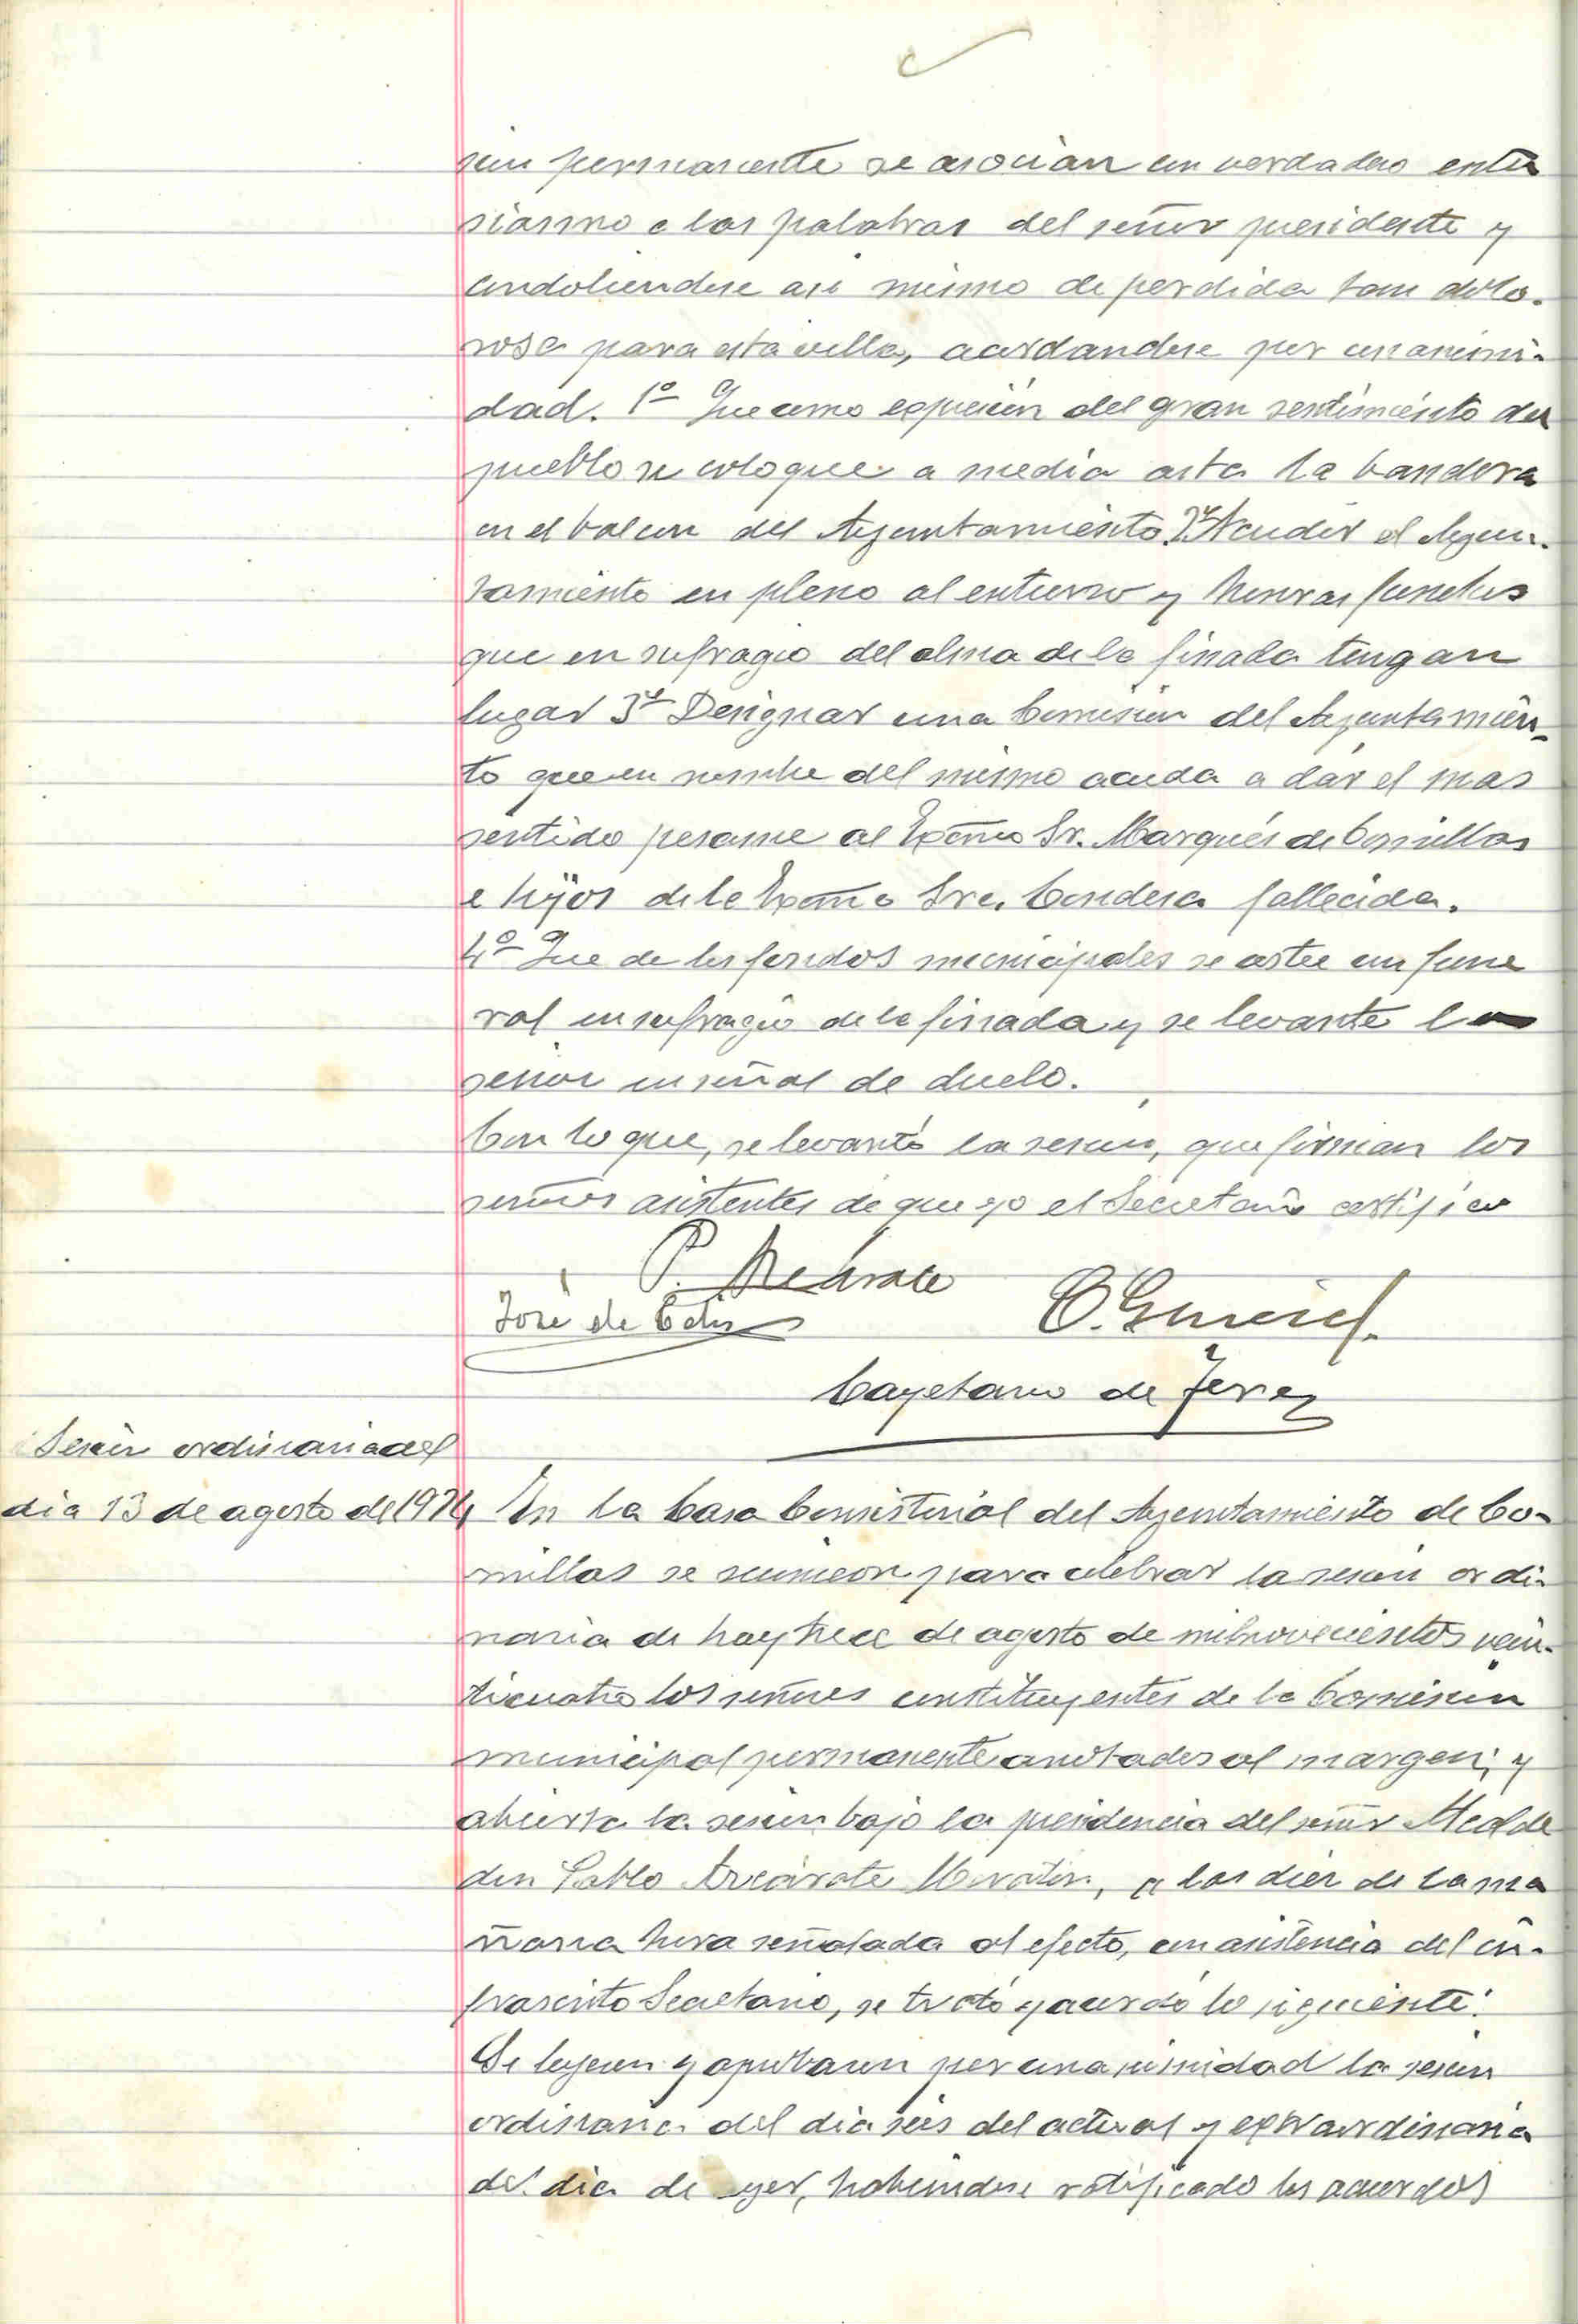 sión permanente se asocian con verdadero entu
siasmo a las palabras del señor presidente y
condoliendose asi mismo de perdida tan dolo-
rosa para esta villa, acordandose por unanimi-
dad. 1º Que como expresión del gran sentimiento del
pueblo se coloque a media asta la bandera
en el balcon del Ayuntamiento 2º Acudir el Ayun-
tamiento en pleno al entierro y honras funebres
que en sufragio del alma de la finada tengan
lugar 3º Designar una Comision del Ayuntamien-
to que en nombre del mismo acuda a dar el mas
sentido pesame al Excmo Sr. Marqués de Comillas
e hijos de la Excma Sra. Condesa fallecida.
4º Que de los fondos municipales se costee un fune
ral en sufragio de la finada y se levante la
sesion en señal de duelo.
Con lo que, se levantó la sesion, que firman los
señores asistentes de que yo el Secretario certifico
P. Azcárate
José de Celis
Cayetano de Jerez
Sesión ordinaria del
dia 13 de agosto de 1924
En la Casa Consistorial del Ayuntamiento de Co-
millas se reunieron para celebrar la sesion ordi-
naria de hoy trece de agosto de mil novecientos vein-
ticuatro los señores constituyentes de la Comision
municipal permanente anotados al margen; y
abierta la sesion bajo la presidencia del señor Alcalde
don Pablo Azcárate, a las diez de la ma
ñana hora señalada al efecto, con asistencia del in-
frascrito Secretario, se trató y acordó lo siguiente:
Se leyeron y aprobaron por unanimidad la sesion
ordinaria del dia seis del actual y extraordinaria
del dia de ayer, habiendose ratificado los acuerdos